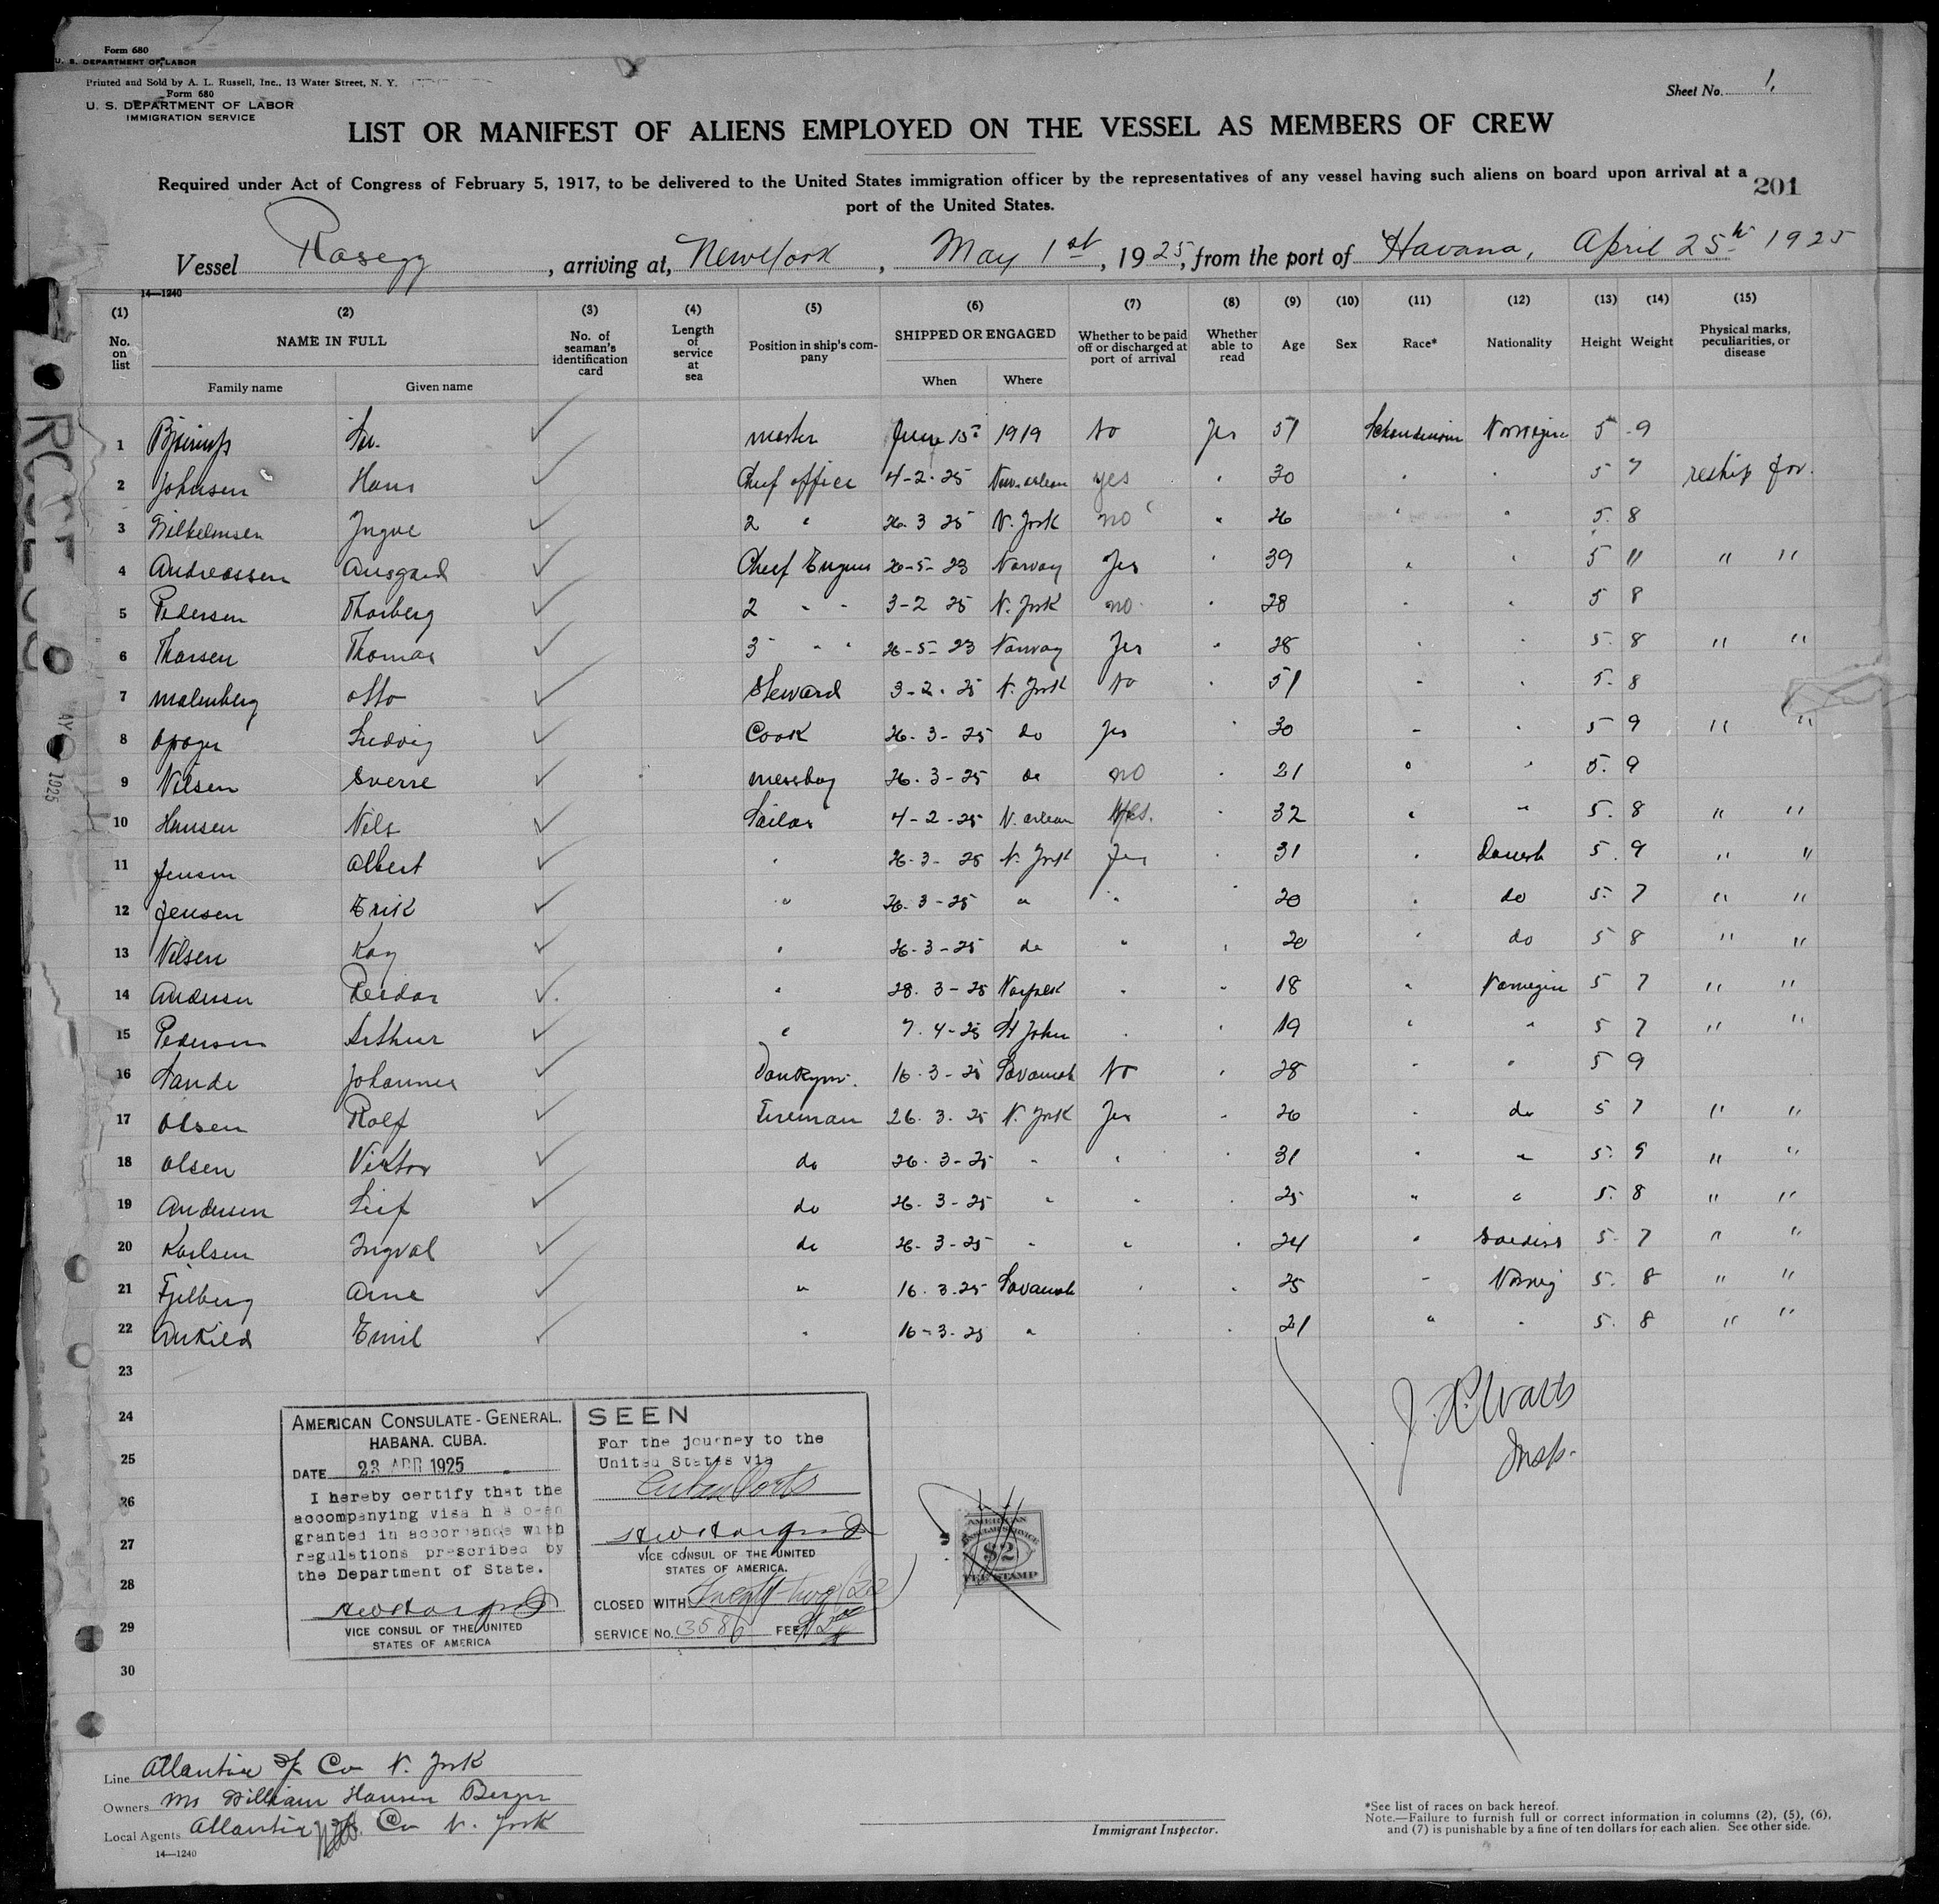 Form 680
U. S. DEPARTMENT OF LABOR
Printed and Sold by A. L. Russell, Inc., 13 Water Street, N. Y.
Form 680
U. S. DEPARTMENT OF LABOR
IMMIGRATION SERVICE
Sheet No. 1.
LIST OR MANIFEST OF ALIENS EMPLOYED ON THE VESSEL AS MEMBERS OF CREW
Required under Act of Congress of February 5, 1917, to be delivered to the United States immigration officer by the representatives of any vessel having such aliens on board upon arrival at a
port of the United States.
201
Vessel Rosegg, arriving at, New York, May 1st, 1925, from the port of Havana, April 25th 1925
14—1240
(1) (2) (3) (4) (5) (6) (7) (8) (9) (10) (11) (12) (13) (14) (15)
No. on list NAME IN FULL Family name Given name No. of seaman's identification card Length of service at sea Position in ship's company SHIPPED OR ENGAGED When Where Whether to be paid off or discharged at port of arrival Whether able to read Age Sex Race* Nationality Height Weight Physical marks, peculiarities, or disease
1 master June 15 1919 No Yes 51 5 9
2 Johnsen Hans Chief officer 4-2-25 New orlean yes 30 5 7 reship for.
3 Wilhelmsen Yngve 2 " 26 3 25 N. York no " 26 5. 8
4 Andreassen Ansgard Chief 26-5-23 Norway Yes 39 5 11 " "
5 Pedersen Thorberg 2 - - 3-2 25 N. York no 28 5 8
6 Thorsen Thomas 3 - - 26-5-23 Norway Yes 28 5. 8 " "
7 Malmberg otto Steward 3-2-25 N. York No 51 5. 8
8 Ludvig Cook 26-3-25 do Yes 30 5 9 " "
9 Nilsen Sverre messboy 26.3-25 do no 21 5. 9
10 Hansen Nils Sailor 4-2-25 N. orlean Yes. 32 " 5. 8 " "
11 Jensen Albert " 26-3-25 N. York Yes 31 Danish 5. 9 " "
12 Jensen Erik " 26.3-25 " " 20 do 5. 7 " "
13 Nilsen Kay " 26-3-25 do " 20 do 5 8 " "
14 Andersen Reidar " 28.3-25 " 18 5 7 " "
15 Pedersen Arthur " 7.4-25 St John 19 5 7 " "
16 Sande Johannes 16.3-25 Savanah No 28 5 9
17 Olsen Rolf Fireman 26.3.25 N. York Yes 26 do 5 7 " "
18 Olsen Viktor do 26.3-25 " " 31 " 5. 9 " "
19 Andersen Leif do 26.3-25 " " 25 " 5. 8 " "
20 Karlsen Ingval do 26-3-25 " " 24 5. 7 " "
21 Fjelberg Arne " 16.3.25 Savanah 25 5. 8 " "
22 Emil " 16-3-25 " 21 5. 8 " "
23
24
25
26
27
28
29
30
AMERICAN CONSULATE-GENERAL.
HABANA. CUBA.
DATE 23 APR 1925
I hereby certify that the
accompanying visa has been
granted in accordance with
regulations prescribed by
the Department of State.
VICE CONSUL OF THE UNITED
STATES OF AMERICA
SEEN
For the journey to the
United States via
Cuban Ports
VICE CONSUL OF THE UNITED
STATES OF AMERICA.
CLOSED WITH Twenty-two (22)
SERVICE NO. 3586 FEE $2.00
AMERICAN
CONSULAR SERVICE
$2
FEE STAMP
Insp.
Line Atlantic Co N. York
Owners William Hansen Bergen
Local Agents Atlantic Co N. York
14—1240
Immigrant Inspector.
*See list of races on back hereof.
Note.—Failure to furnish full or correct information in columns (2), (5), (6),
and (7) is punishable by a fine of ten dollars for each alien. See other side.